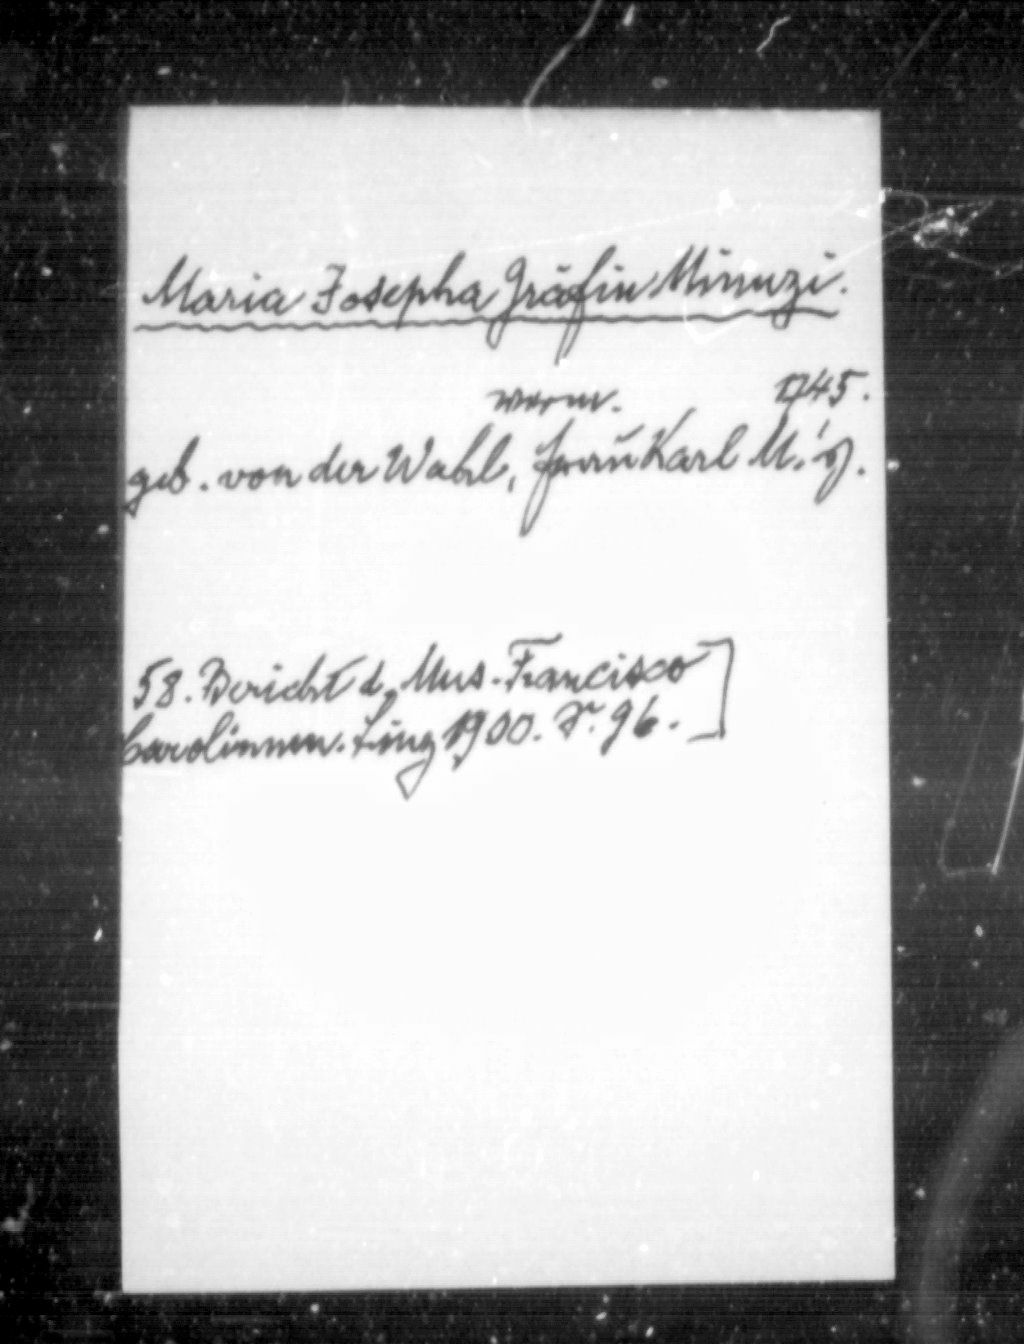 Maria Josepha Gräfin Minuzi.
verw. 1745.
geb. von der Wahl, Frau Karl M.'s.
58. Bericht d. Mus. Francisco
Carolinum. Linz 1900. S. 96.